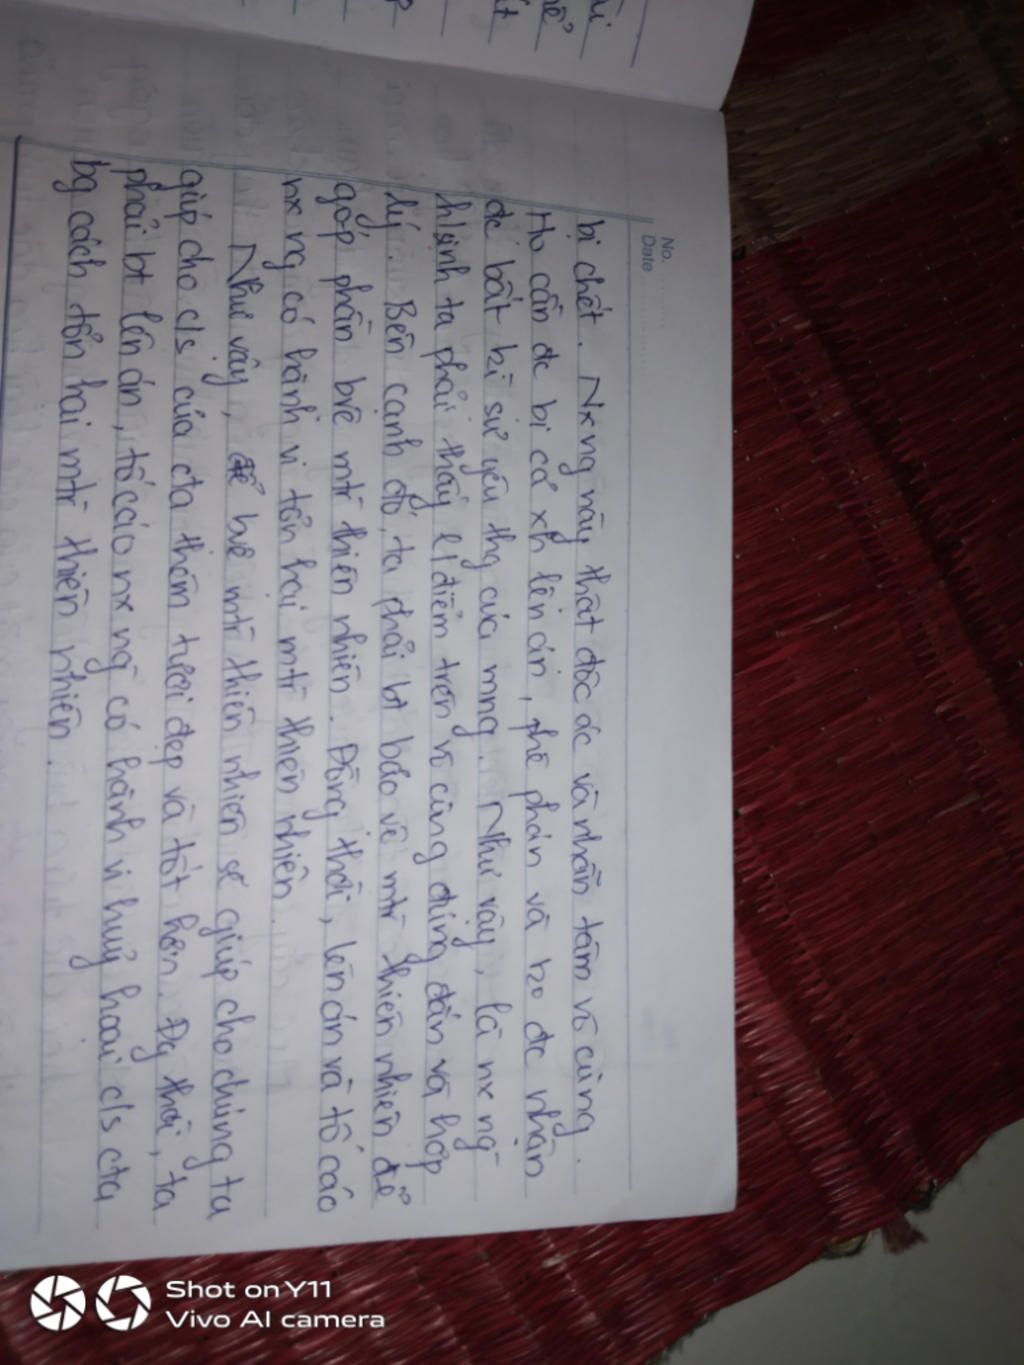 No.
Date
bị chết. Nxng này thật độc ác và nhẫn tâm vô cùng.
Họ cần đc bị cả xh lên án, phê phán và ko đc nhận
đc bất kì sự yêu thg của mng. Như vậy, là nx ng
hs ta phải thấy đ điểm trên vô cùng đúng đắn và hợp
lý. Bên cạnh đó, ta phải bt bảo vệ mtr thiên nhiên để
góp phần bvệ mtr thiên nhiên. Đồng thời, lên án và tố cáo
nx ng có hành vi tổn hại mtr thiên nhiên.
Như vậy, để bvệ mtr thiên nhiên sẽ giúp cho chúng ta
giúp cho c/s của cta thêm tươi đẹp và tốt hơn. Đg thời, ta
phải bt lên án, tố cáo nx ng có hành vi huỷ hoại c/s cta
bg cách tổn hại mtr thiên nhiên.
Shot on Y11
Vivo AI camera